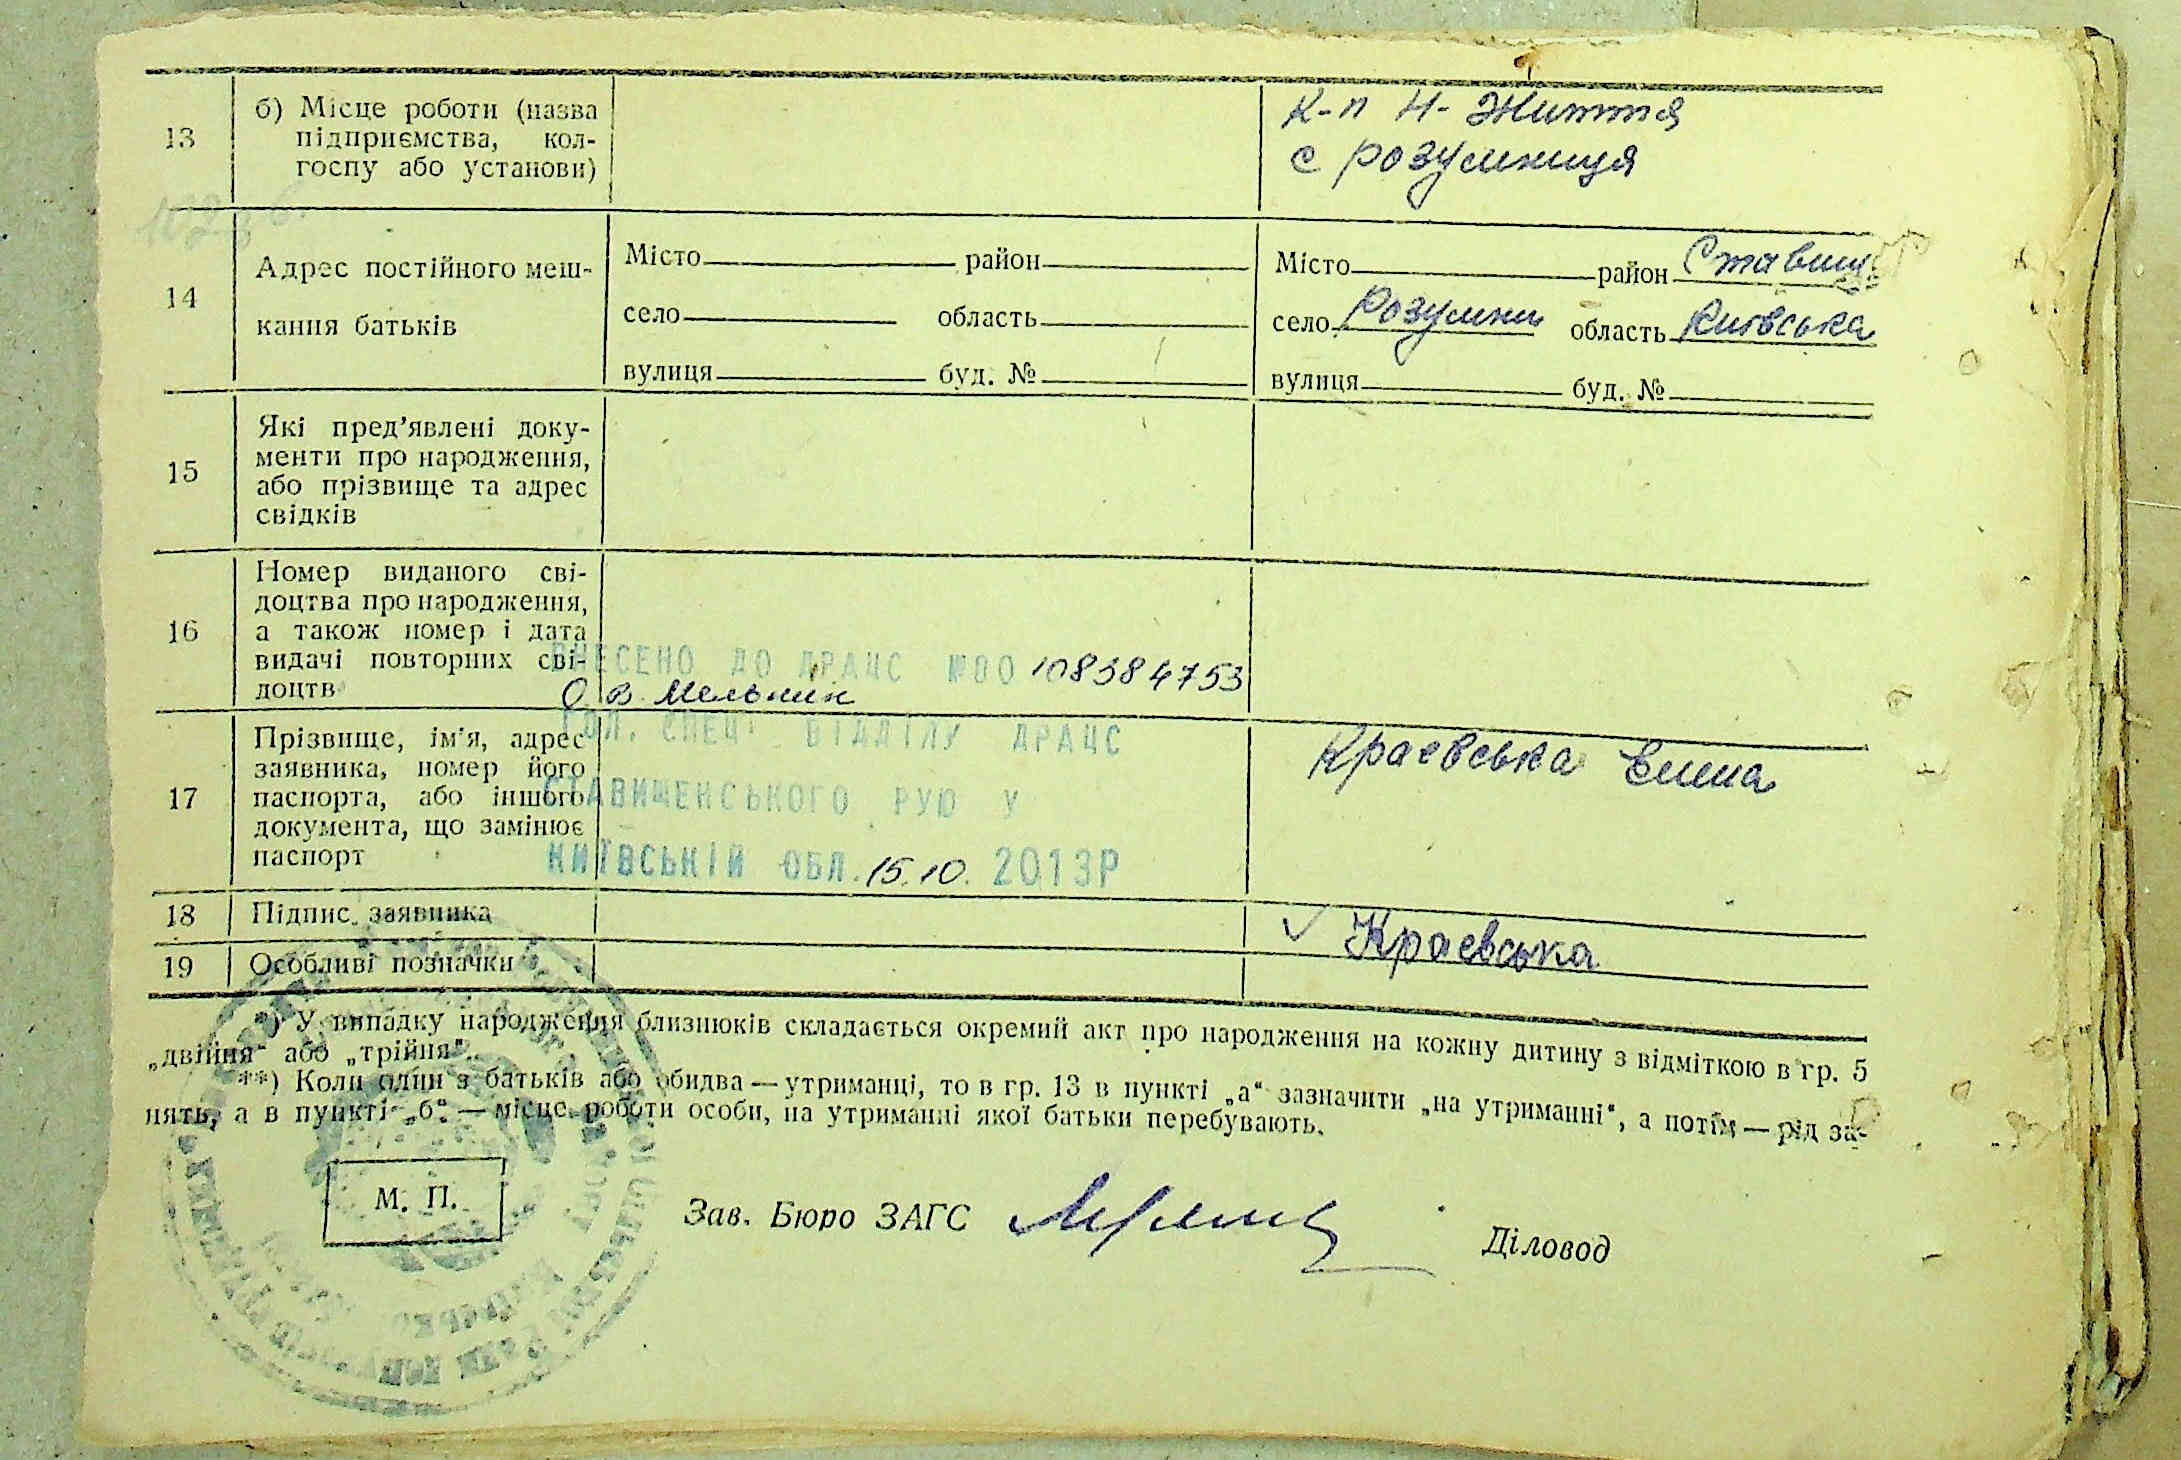 13
б) Місце роботи (назва
підприємства, кол-
госпу або установи)
к-п Н-Життя
с розумниця
14
Адрес постійного меш-
кання батьків
Місто район
село область
вулиця буд. №
Місто район Ставищ
село Розумни область Київська
вулиця буд. №
15
Які пред’явлені доку-
менти про народження,
або прізвище та адрес
свідків
16
Номер виданого сві-
доцтва про народження,
а також номер і дата
видачі повторних сві-
доцтв
ВНЕСЕНО ДО ДРАЦС №00 108384753
О В. Мельник
ГОЛ. СПЕЦ. ВІДДІЛУ ДРАЦС
СТАВИЩЕНСЬКОГО РУЮ У
КИЇВСЬКІЙ ОБЛ. 15.10. 2013Р
17
Прізвище, ім’я, адрес
заявника, номер його
паспорта, або іншого
документа, що замінює
паспорт
Краевська
18
Підпис заявника
Краевська
19
Особливі позначки
*) У випадку народження близнюків складається окремий акт про народження на кожну дитину з відміткою в гр. 5
„двійня“ або „трійня“.
**) Коли один з батьків або обидва — утриманці, то в гр. 13 в пункті „а“ зазначити „на утриманні“, а потім — рід за-
нять, а в пункті „б“ — місце роботи особи, на утриманні якої батьки перебувають.
М. П.
Зав. Бюро ЗАГС
Діловод